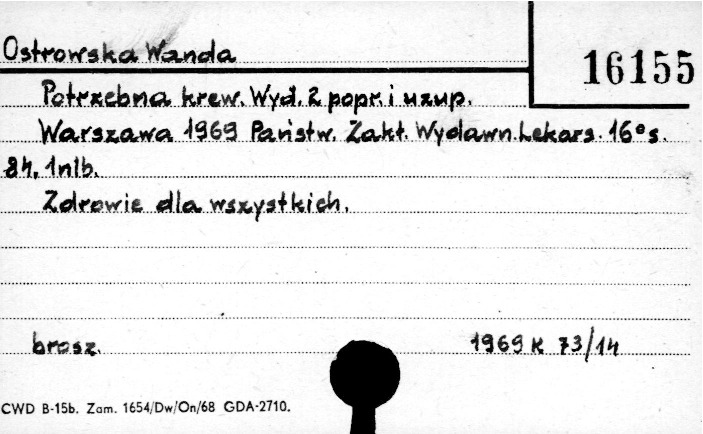 Ostrowska Wanda
16155
Potrzebna krew. Wyd. 2 popr. i uzup.
Warszawa 1969 Państw. Zakł. Wydawn. Lekars. 16° s.
84, 1nlb.
Zdrowie dla wszystkich.
brosz.
1969 K 73/14
CWD B-15b. Zam. 1654/Dw/On/68 GDA-2710.